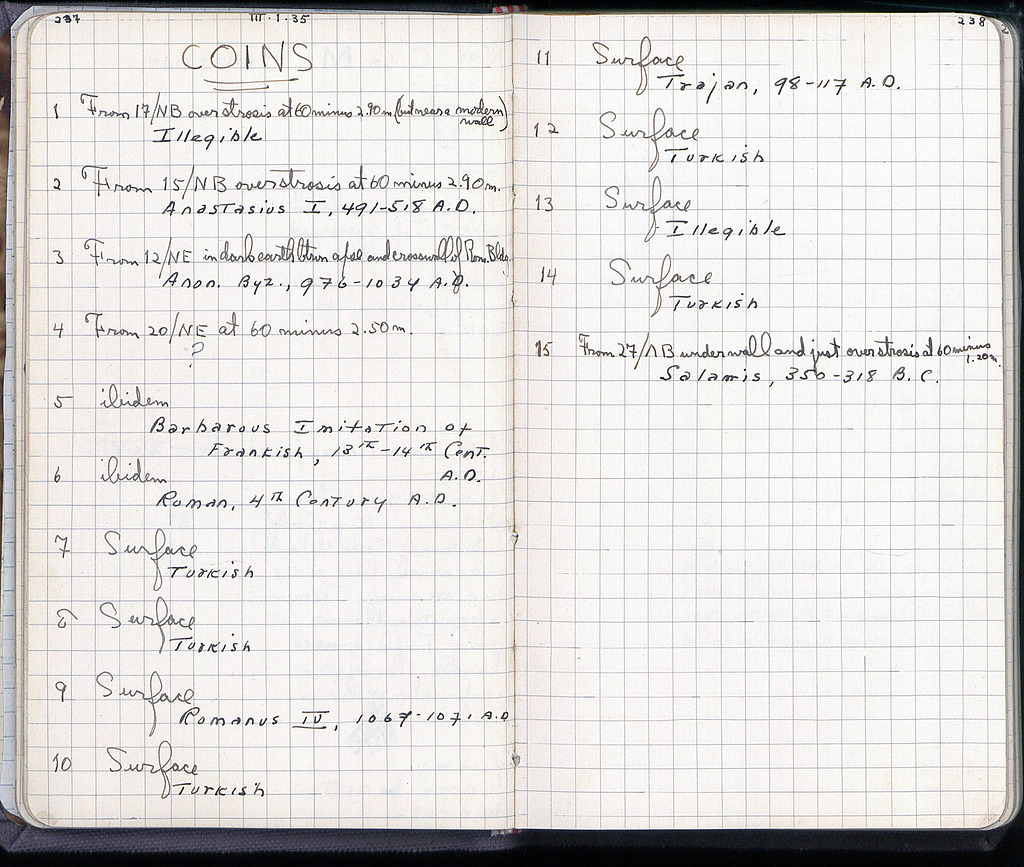 237
III · 1 · 35
COINS
1 From 17/NB over strosis at 60 minus 2.90 m (but near a modern wall)
Illegible
2 From 15/NB over strosis at 60 minus 2.90 m.
Anastasius I, 491-518 A.D.
3 From 12/NE in dark earth btwn apse and crosswall of Rom. Bldg.
Anon. Byz., 976-1034 A.D.
4 From 20/NE at 60 minus 2.50 m.
?
5 ibidem
Barbarous Imitation of
Frankish, 13TH-14TH Cent.
A.D.
6 ibidem
Roman, 4TH Century A.D.
7 Surface
Turkish
8 Surface
Turkish
9 Surface
Romanus IV, 1067-1071 A.D
10 Surface
Turkish
238
11 Surface
Trajan, 98-117 A.D.
12 Surface
Turkish
13 Surface
Illegible
14 Surface
Turkish
15 From 27/ΛB under wall and just over strosis at 60 minus 1.20 m.
Salamis, 350-318 B.C.